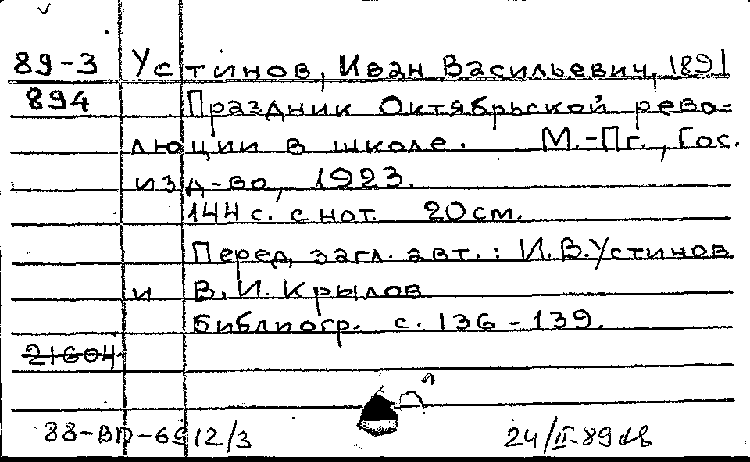 89-3 Устинов, Иван Васильевич, 1891
894 Праздник Октябрьской рево-
люции в школе. М.-Пг., Гос.
изд-во, 1923.
144 с. с нот. 20 см.
Перед загл. авт.: И.В.Устинов
и В.И.Крылов
Библиогр. с. 136-139.
21604
88-ВП-6912/3 24/II-89